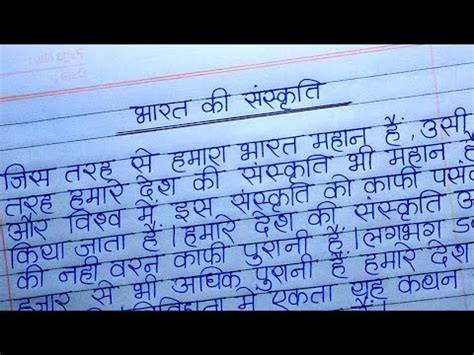 भारत की संस्कृति
जिस तरह से हमारा भारत महान हैं, उसी
तरह हमारे देश की संस्कृति भी महान है
और विश्व में इस संस्कृति को काफी पसंद
किया जाता हैं। हमारे देश की संस्कृति
की नही वरन काफी पुरानी हैं। लगभग
हजार से भी अधिक पुरानी हैं हमारे देश
में एकता यह कथन